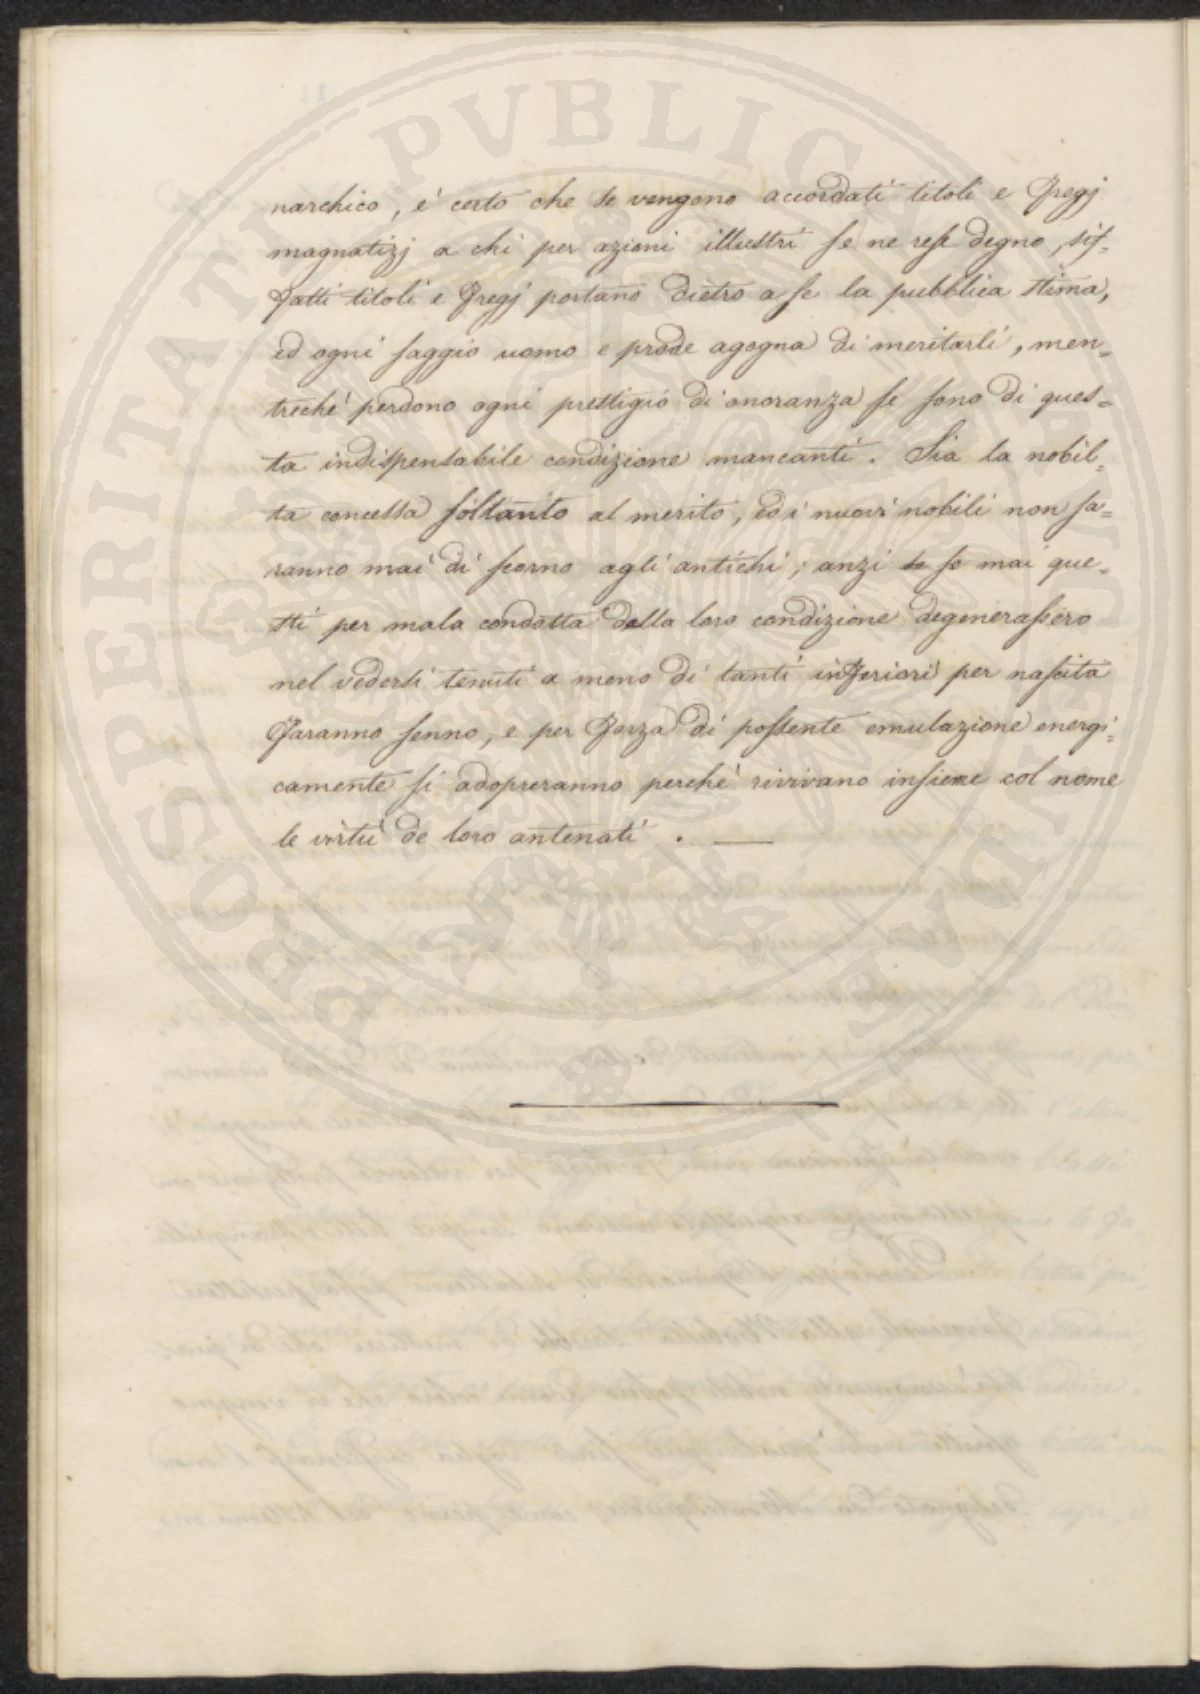 narchico, é certo che se vengono accordati titoli e fregj
magnatizj a chi per azioni illustri se ne rese degno, sif-
fatti titoli e fregj portano dietro a se la pubblica stima,
ed ogni saggio uomo e prode agogna di meritarli, men=
treché perdono ogni prestigio di onoranza se sono di ques=
ta indispensabile condizione mancanti. Sia la nobil=
ta concessa soltanto al merito, ed i nuovi nobili non sa=
ranno mai di scorno agli antichi; anzi se se mai que=
sti per mala condotta della loro condizione degenerassero
nel vedersi tenuti a meno di tanti inferiori per nascita
faranno senno, e per forza di possente emulazione energi=
camente si adopreranno perché rivivano insieme col nome
le virtú de loro antenati. —
PROSPERITATI PVBLICAE